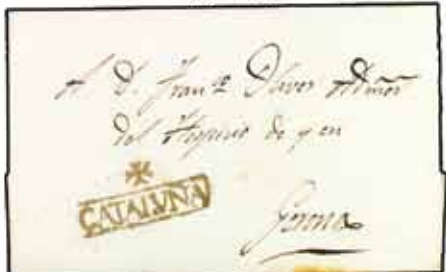 A D. Fran.co Oliver Admōr
del Hospicio de y en
CATALUÑA
Gerona